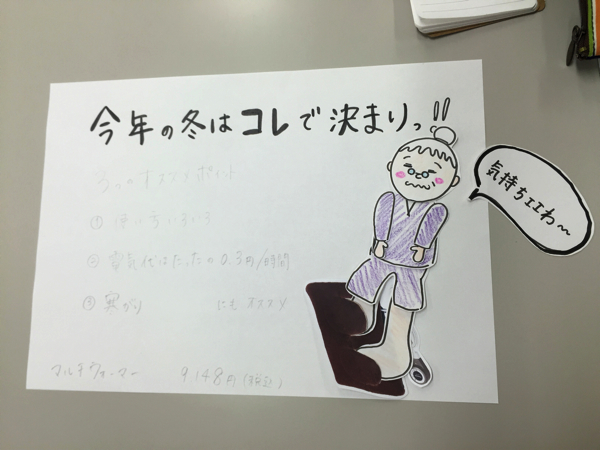 今年の冬はコレで決まりっ!!
気持ちエエわ〜
3つのオススメポイント
① 使い方いろいろ
② 電気代はたったの0.3円/時間
③ 寒がり にもオススメ
マルチウォーマー 9,148円(税込)